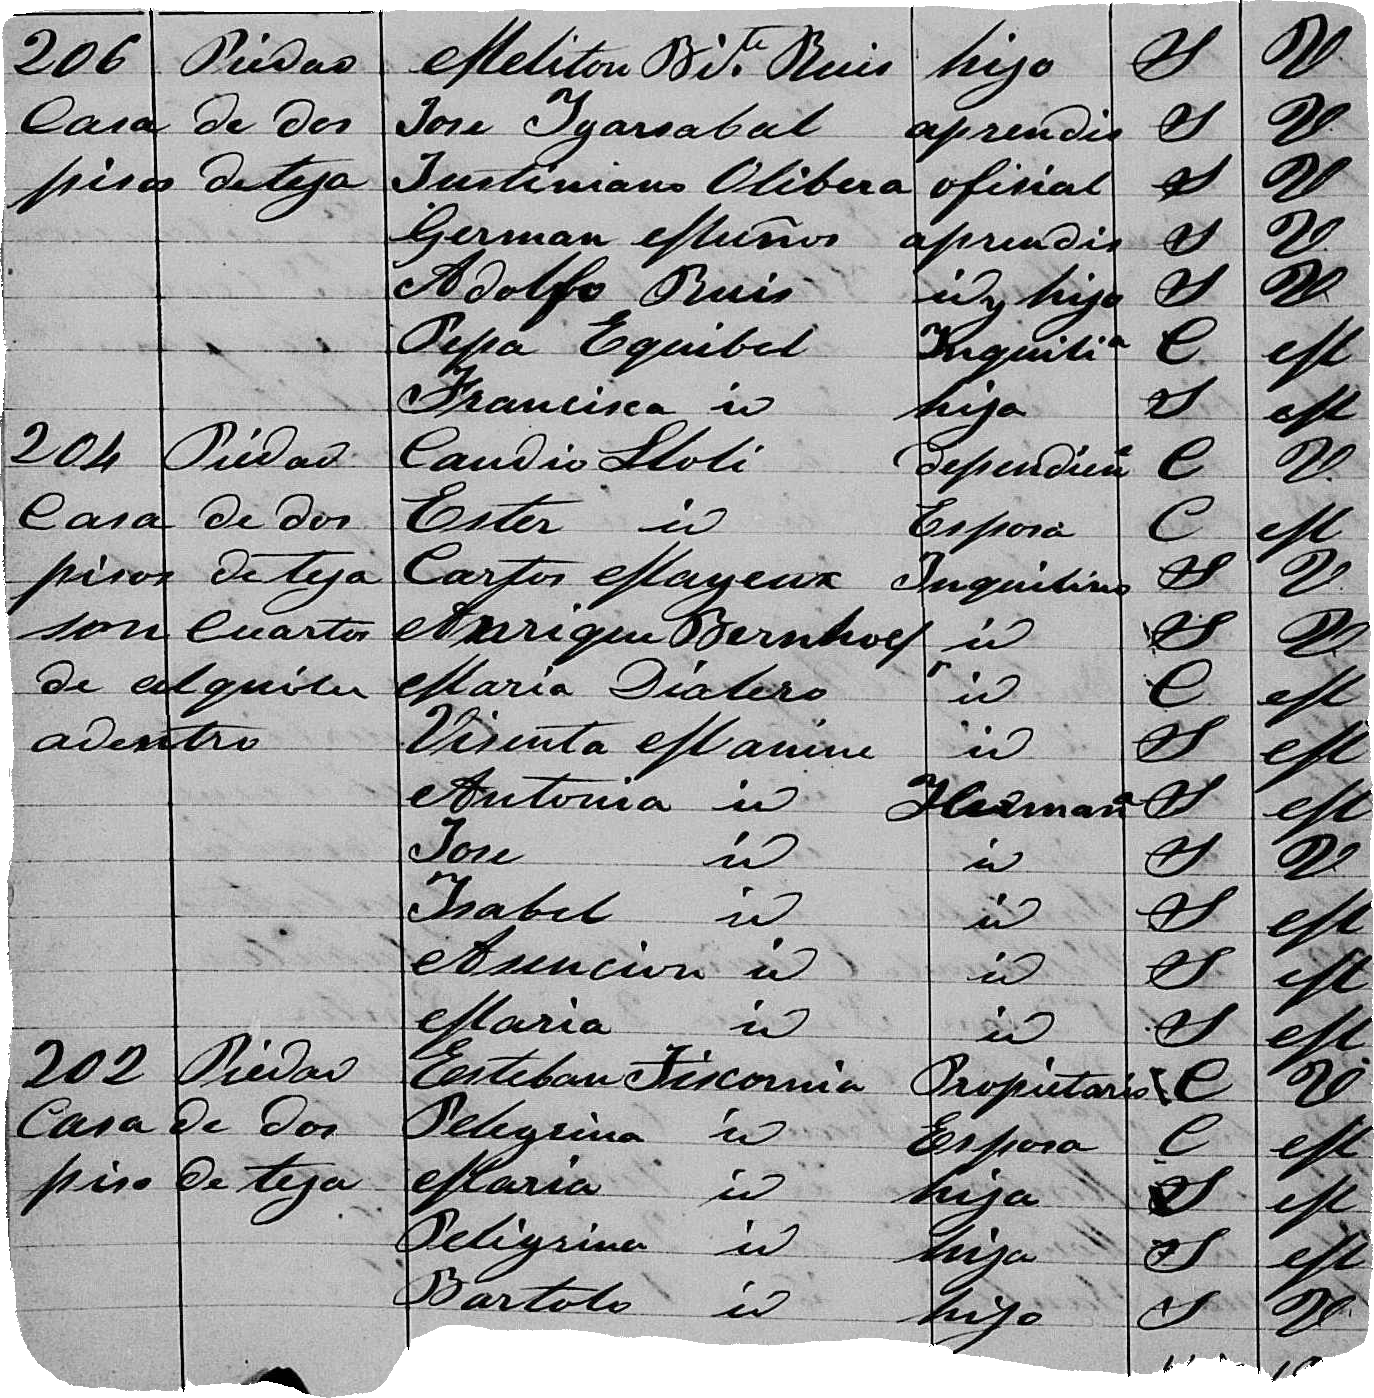 206 Piedad Meliton Bi.te Ruis hijo S V
Casa de dos Jose Ygarsabal aprendis S V
pisos de teja Justiniano Olibera ofisial S V
German Muños aprendis S V
Adolfo Ruis id y hijo S V
Pepa Equibel Inquilia C M
Francisca id hija S M
204 Piedad Caudio Lloli dependien C V
Casa de dos Ester id Esposa C M
pisos de teja Carlos Mayeux Inquilino S V
son Cuartos Anrique Bernhoef id S V
de alquiler Maria Dialero id C M
adentro Visenta Manine id S M
Antonia id Hermana S M
Jose id id S V
Isabel id id S M
Asencion id id S M
Maria id id S M
202 Piedad Esteban Fiscornia Propietario C V
Casa de dos Pelegrina id Esposa C M
piso de teja Maria id hija S M
Peligrina id hija S M
Bartolo id hijo S V